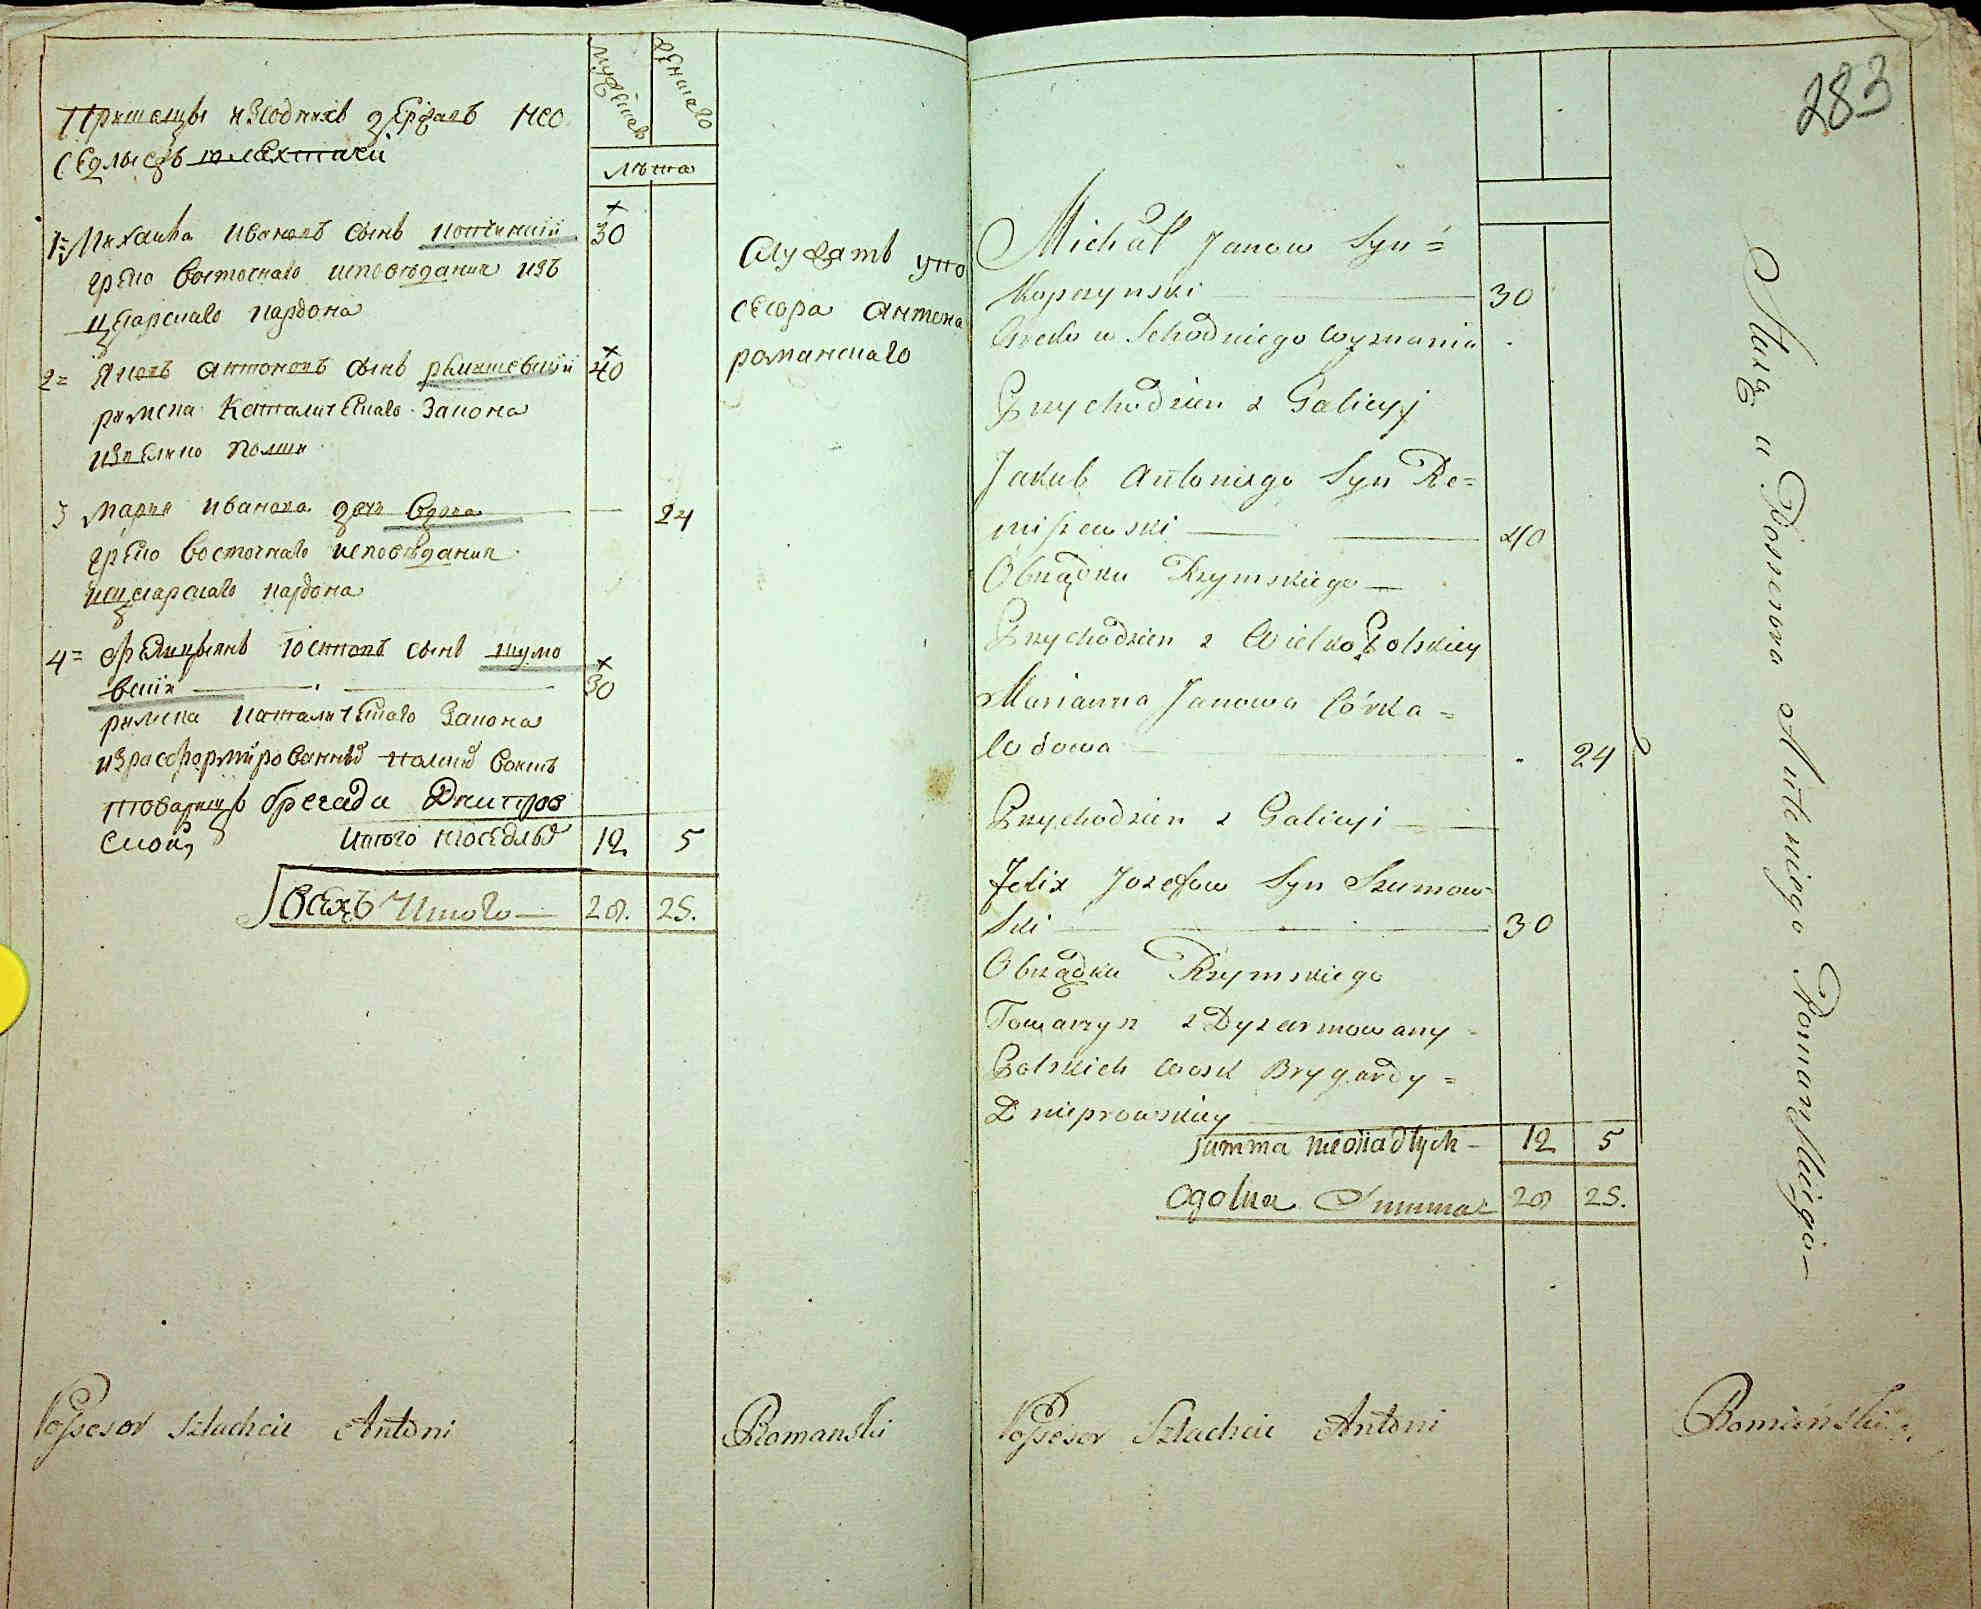 мужеска
женска
Пришелцы изъодныхъ державъ нео
седлыехъ шляхтичи
лѣта
1= Михайла Ивановъ сынъ Копчинский 30
греко восточнаго исповѣдания изъ
цесарскаго кардона
2= Яковъ Антоновъ сынъ 40
римска католическаго закона
Полши
3 Марья Иванова дочь вдова — 24
греко восточнаго исповѣдания
цесарскаго кардона
4= Фелицыянъ Iосиповъ сынъ Шумо
вский 30
римска католическаго закона
израсформированныхъ полскихъ воискъ
товарищъ брегады Днипров
ской
Итого неоседлыхъ 12 5
Всехъ Итого 28. 25.
Служатъ упо
сесора Антона
Романскаго
Possesor Szlachcic Antoni Romanski
283
Michał Janow Syn=
Kopczynski 30
Greko w Schodniego wyznania
Przychodzien z Galicyj
Jakub Antoniego Syn Re=
miszewski 40
Obrządku Rzymskiego
Przychodzien z Wielko Polskiey
Marianna Janowa Córka=
wdowa 24
Przychodzien z Galicyi
Felix Jozefow Syn Szumow=
Ski 30
Obrządku Rzymskiego
Towarzysz z Dyzarmowany
Polskich woisk Brygardy=
Dnieprowskiey
Summa nieosiadłych 12 5
Ogolna Summa 28 25.
Służą u Possesora Antoniego Romanskiego
Possesor Szlachcic Antoni Romański